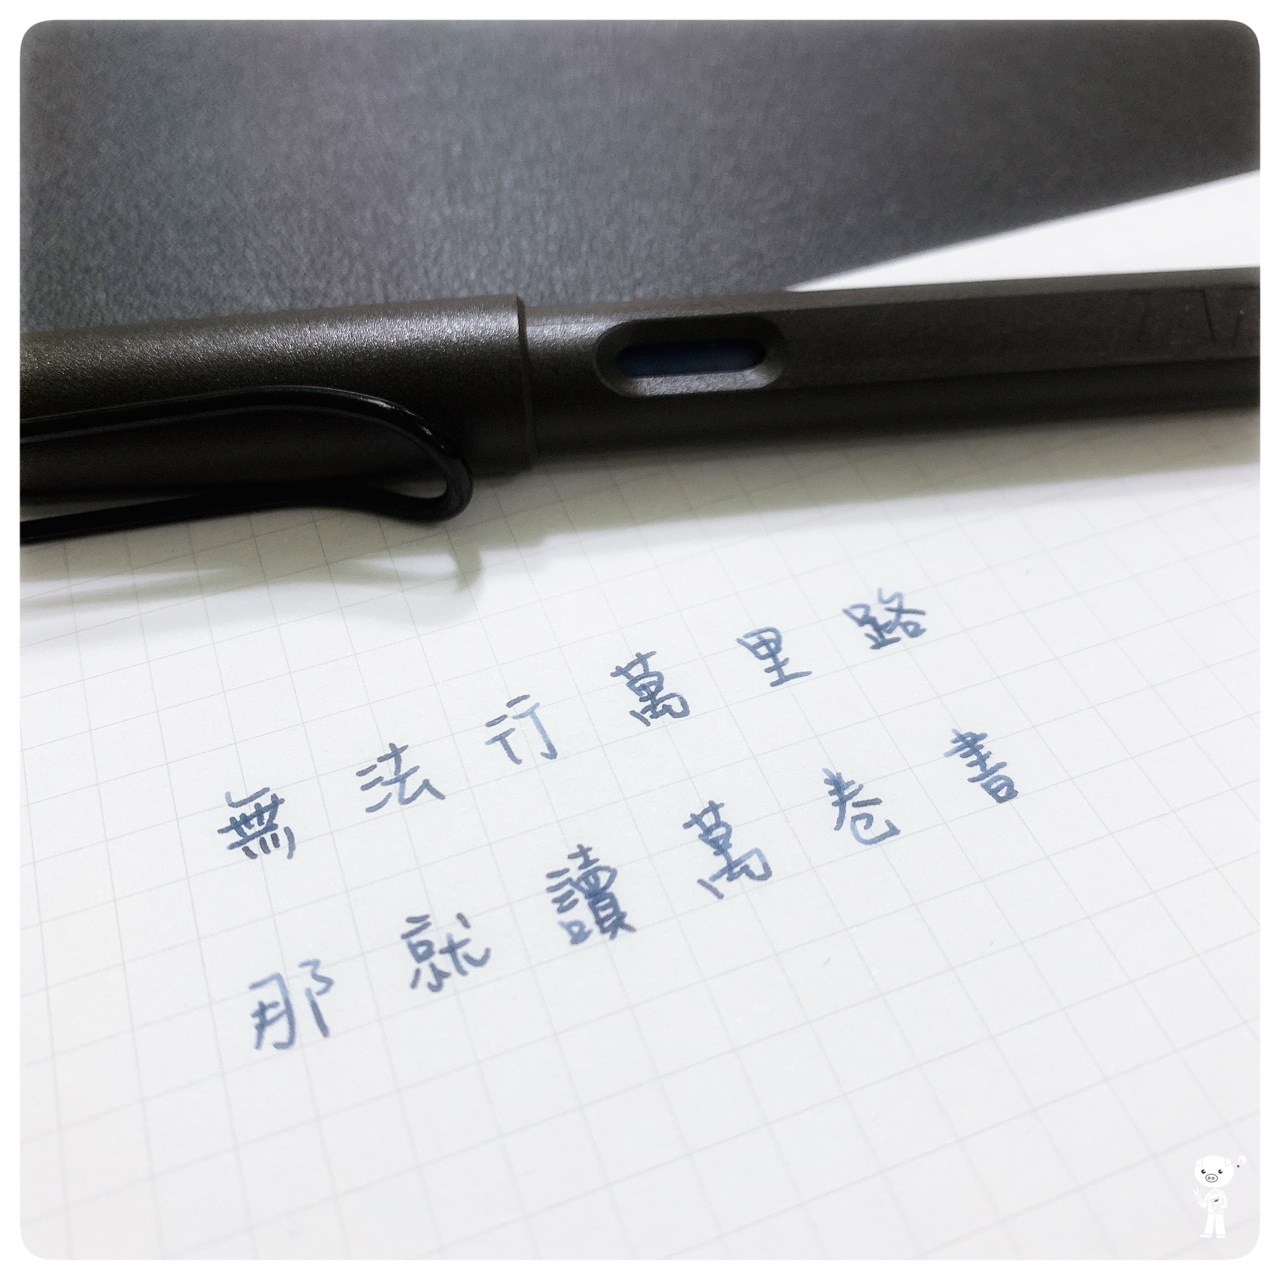 無法行萬里路
那就讀萬卷書